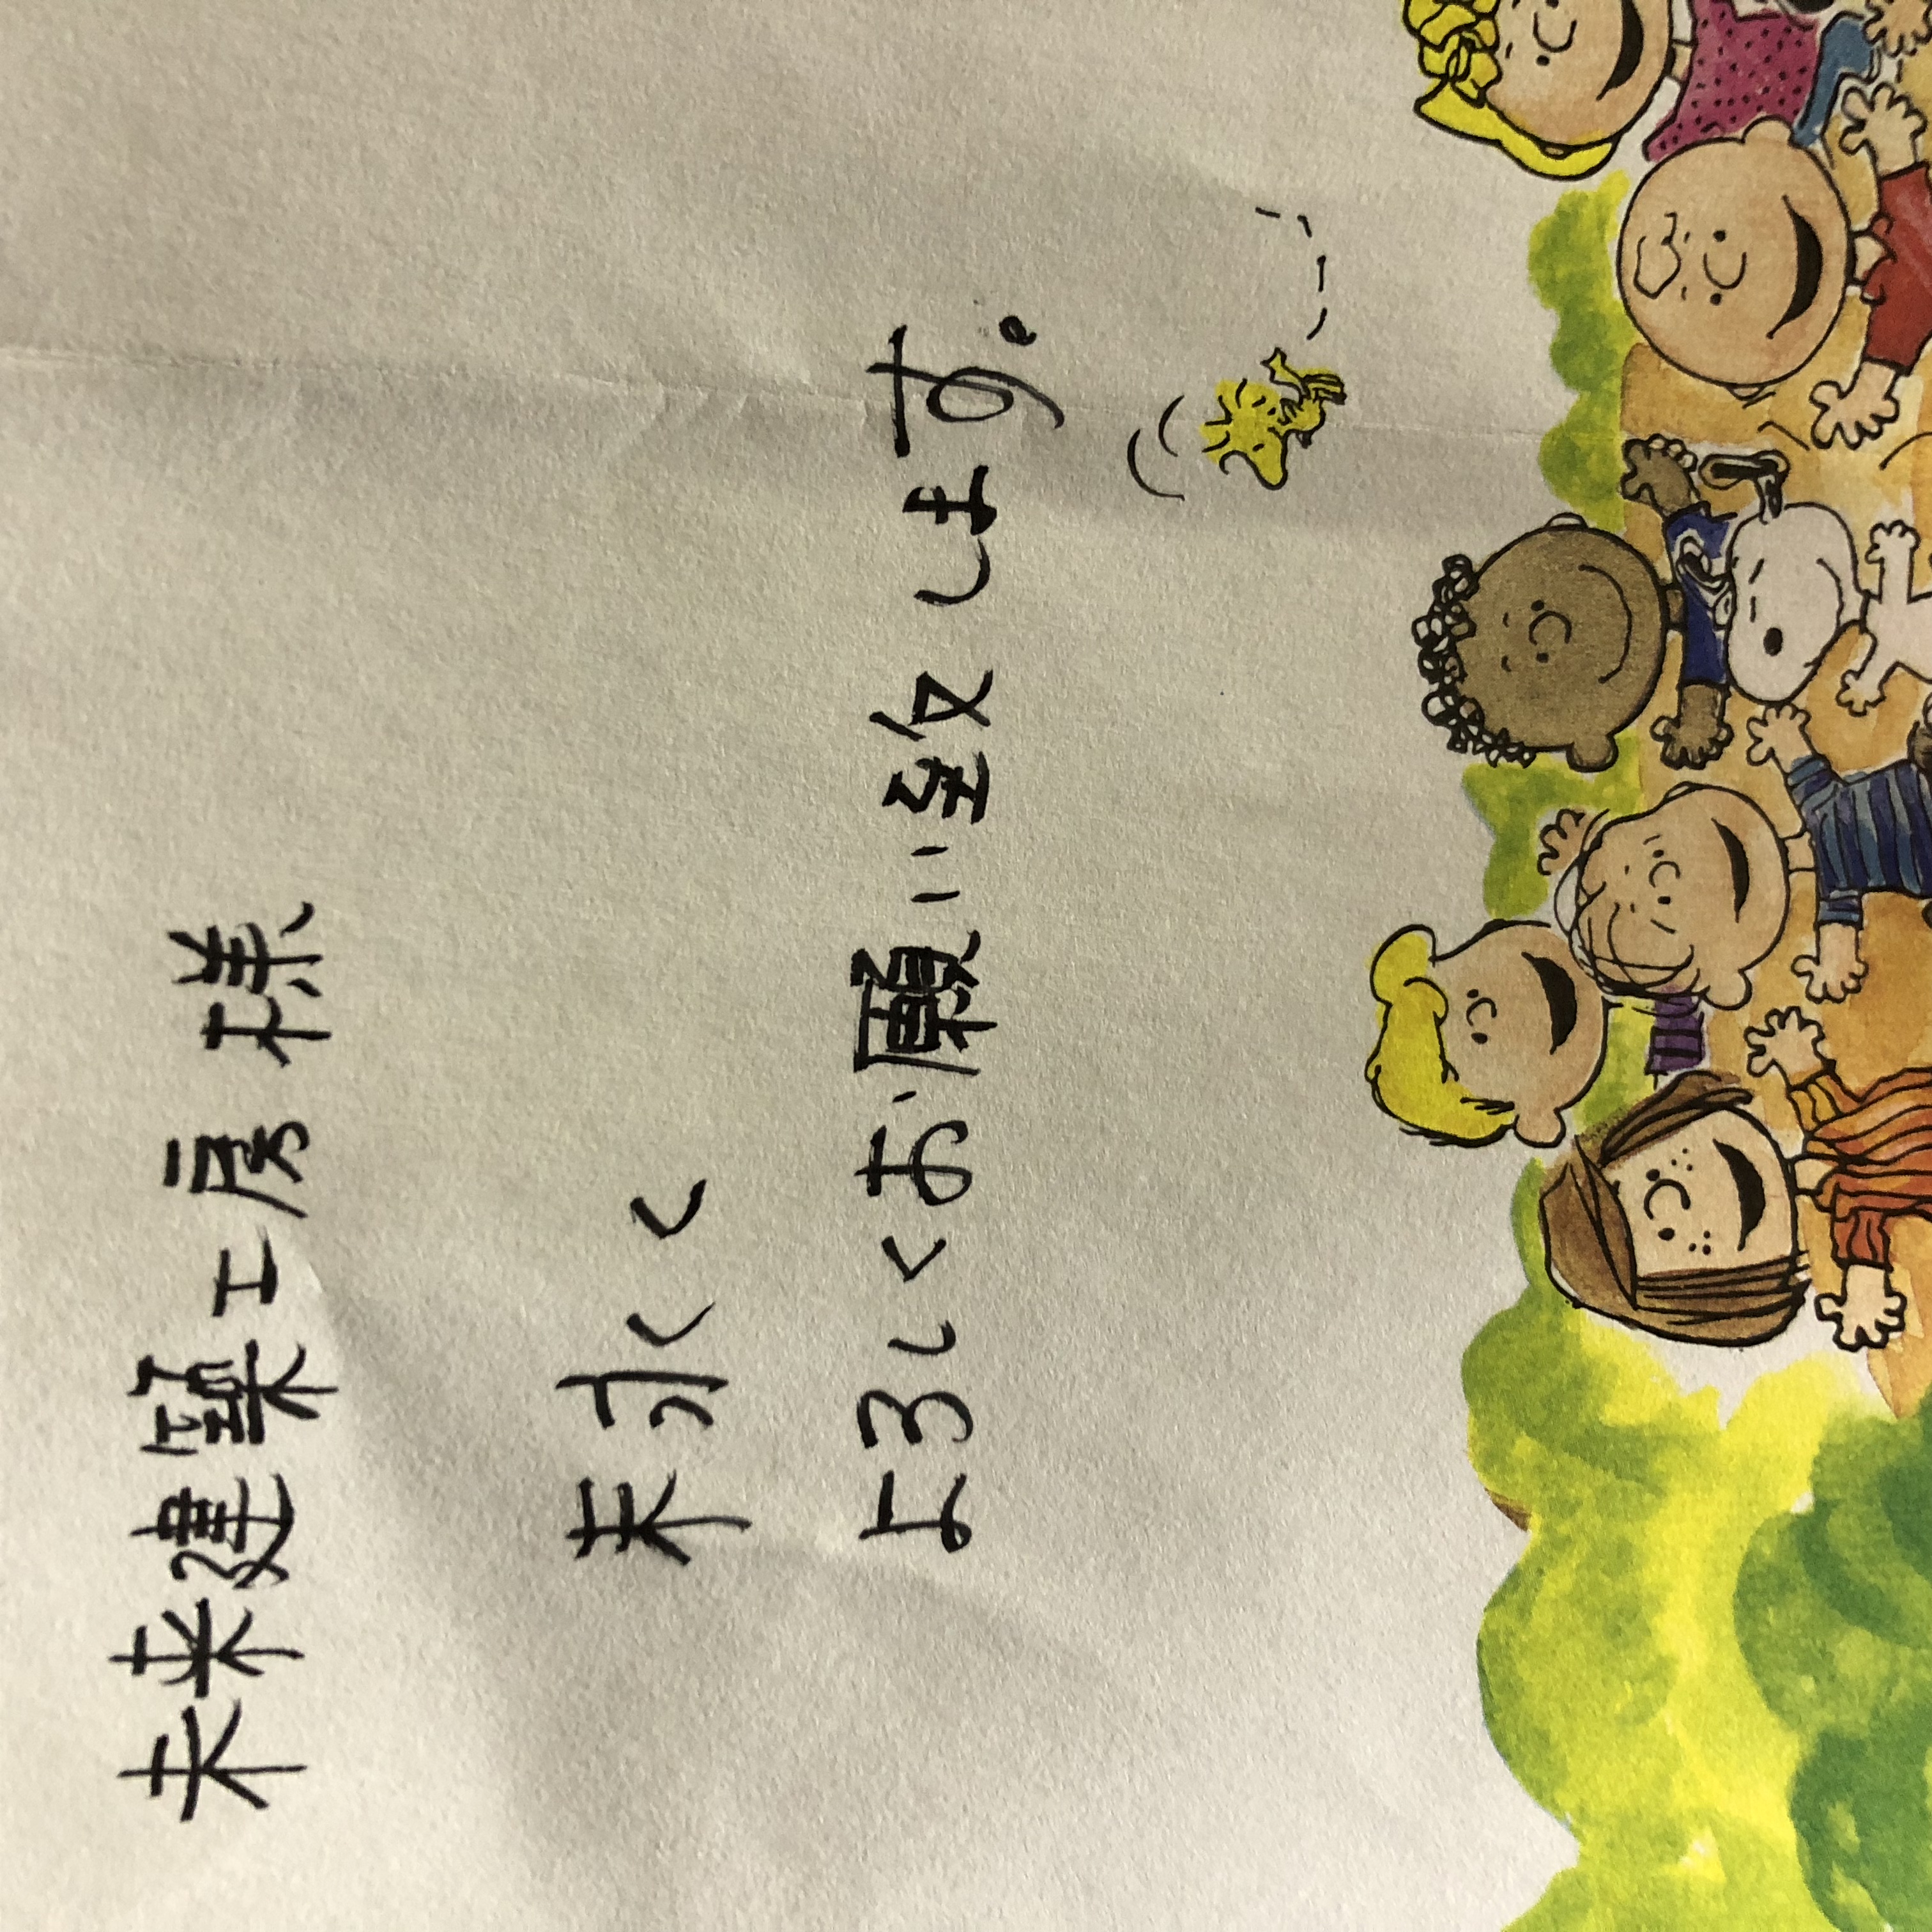 未来建築工房 様
末永く
よろしくお願い致します。